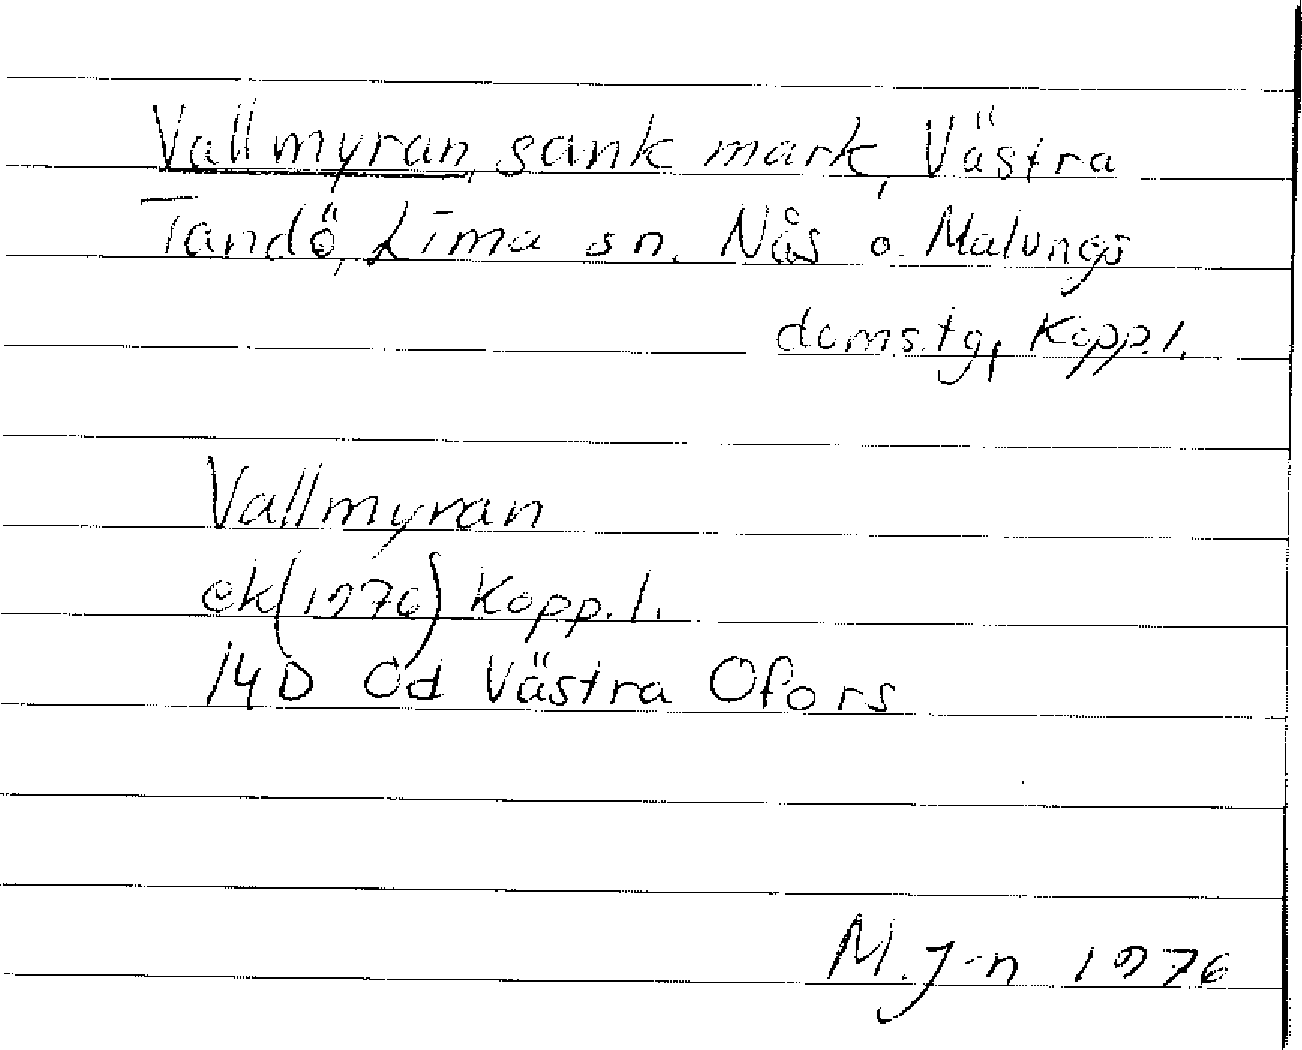 Vallmyran, sank mark, Västra
Tandö, Lima sn. Nås o. Malungs
domstg, Kopp.l.
Vallmyran
ek(1976) Kopp.l.
14D 0d Västra Ofors
M.J-n 1976